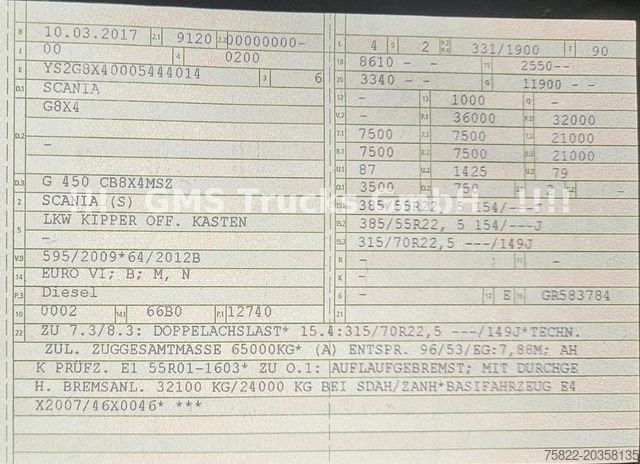 B 10.03.2017 2.1 9120 2.2 00000000-
J 00 4 0200
E YS2G8X40005444014 3 6
D.1 SCANIA
G8X4
D.2 -
D.3 G 450 CB8X4MSZ
2 SCANIA (S)
5 LKW KIPPER OFF. KASTEN
-
V.9 595/2009*64/2012B
14 EURO VI; B; M, N
P.3 Diesel
10 0002 14.1 66B0 P.1 12740
L 4 9 2 P.2 P.4 331/1900 T 90
18 8610 - - 19 2550--
20 3340 - - G 11900 - -
12 - 13 1000 Q -
V.7 - F.1 36000 F.2 32000
7.1 7500 7.2 7500 7.3 21000
8.1 7500 8.2 7500 8.3 21000
U.1 87 U.2 1425 U.3 79
O.1 3500 O.2 750 S.1 2 S.2 -
15.1 385/55R22, 5 154/---J
15.2 385/55R22, 5 154/---J
15.3 315/70R22,5 ---/149J
R - 11 -
K -
6 - 17 E 16 GR583784
21
22 ZU 7.3/8.3: DOPPELACHSLAST* 15.4:315/70R22,5 ---/149J*TECHN.
ZUL. ZUGGESAMTMASSE 65000KG* (A) ENTSPR. 96/53/EG:7,88M; AH
K PRÜFZ. E1 55R01-1603* ZU O.1: AUFLAUFGEBREMST; MIT DURCHGE
H. BREMSANL. 32100 KG/24000 KG BEI SDAH/ZANH*BASIFAHRZEUG E4
X2007/46X0046* ***
GMS Trucks GmbH !!!!
75822-20358135